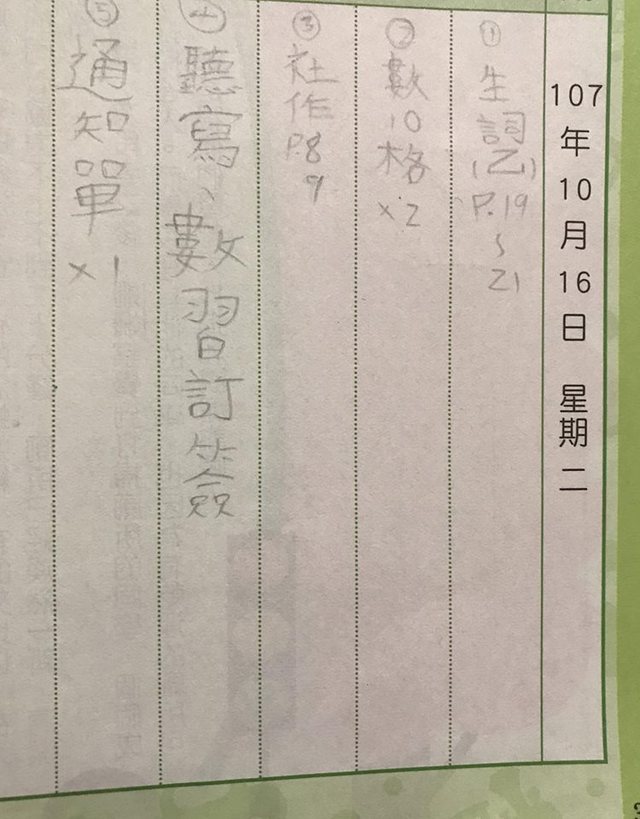 107年10月16日 星期二
①生詞(乙)P.19~21
②數10格×2
③社作P.8 9
④聽寫、數習訂簽
⑤通知單×1